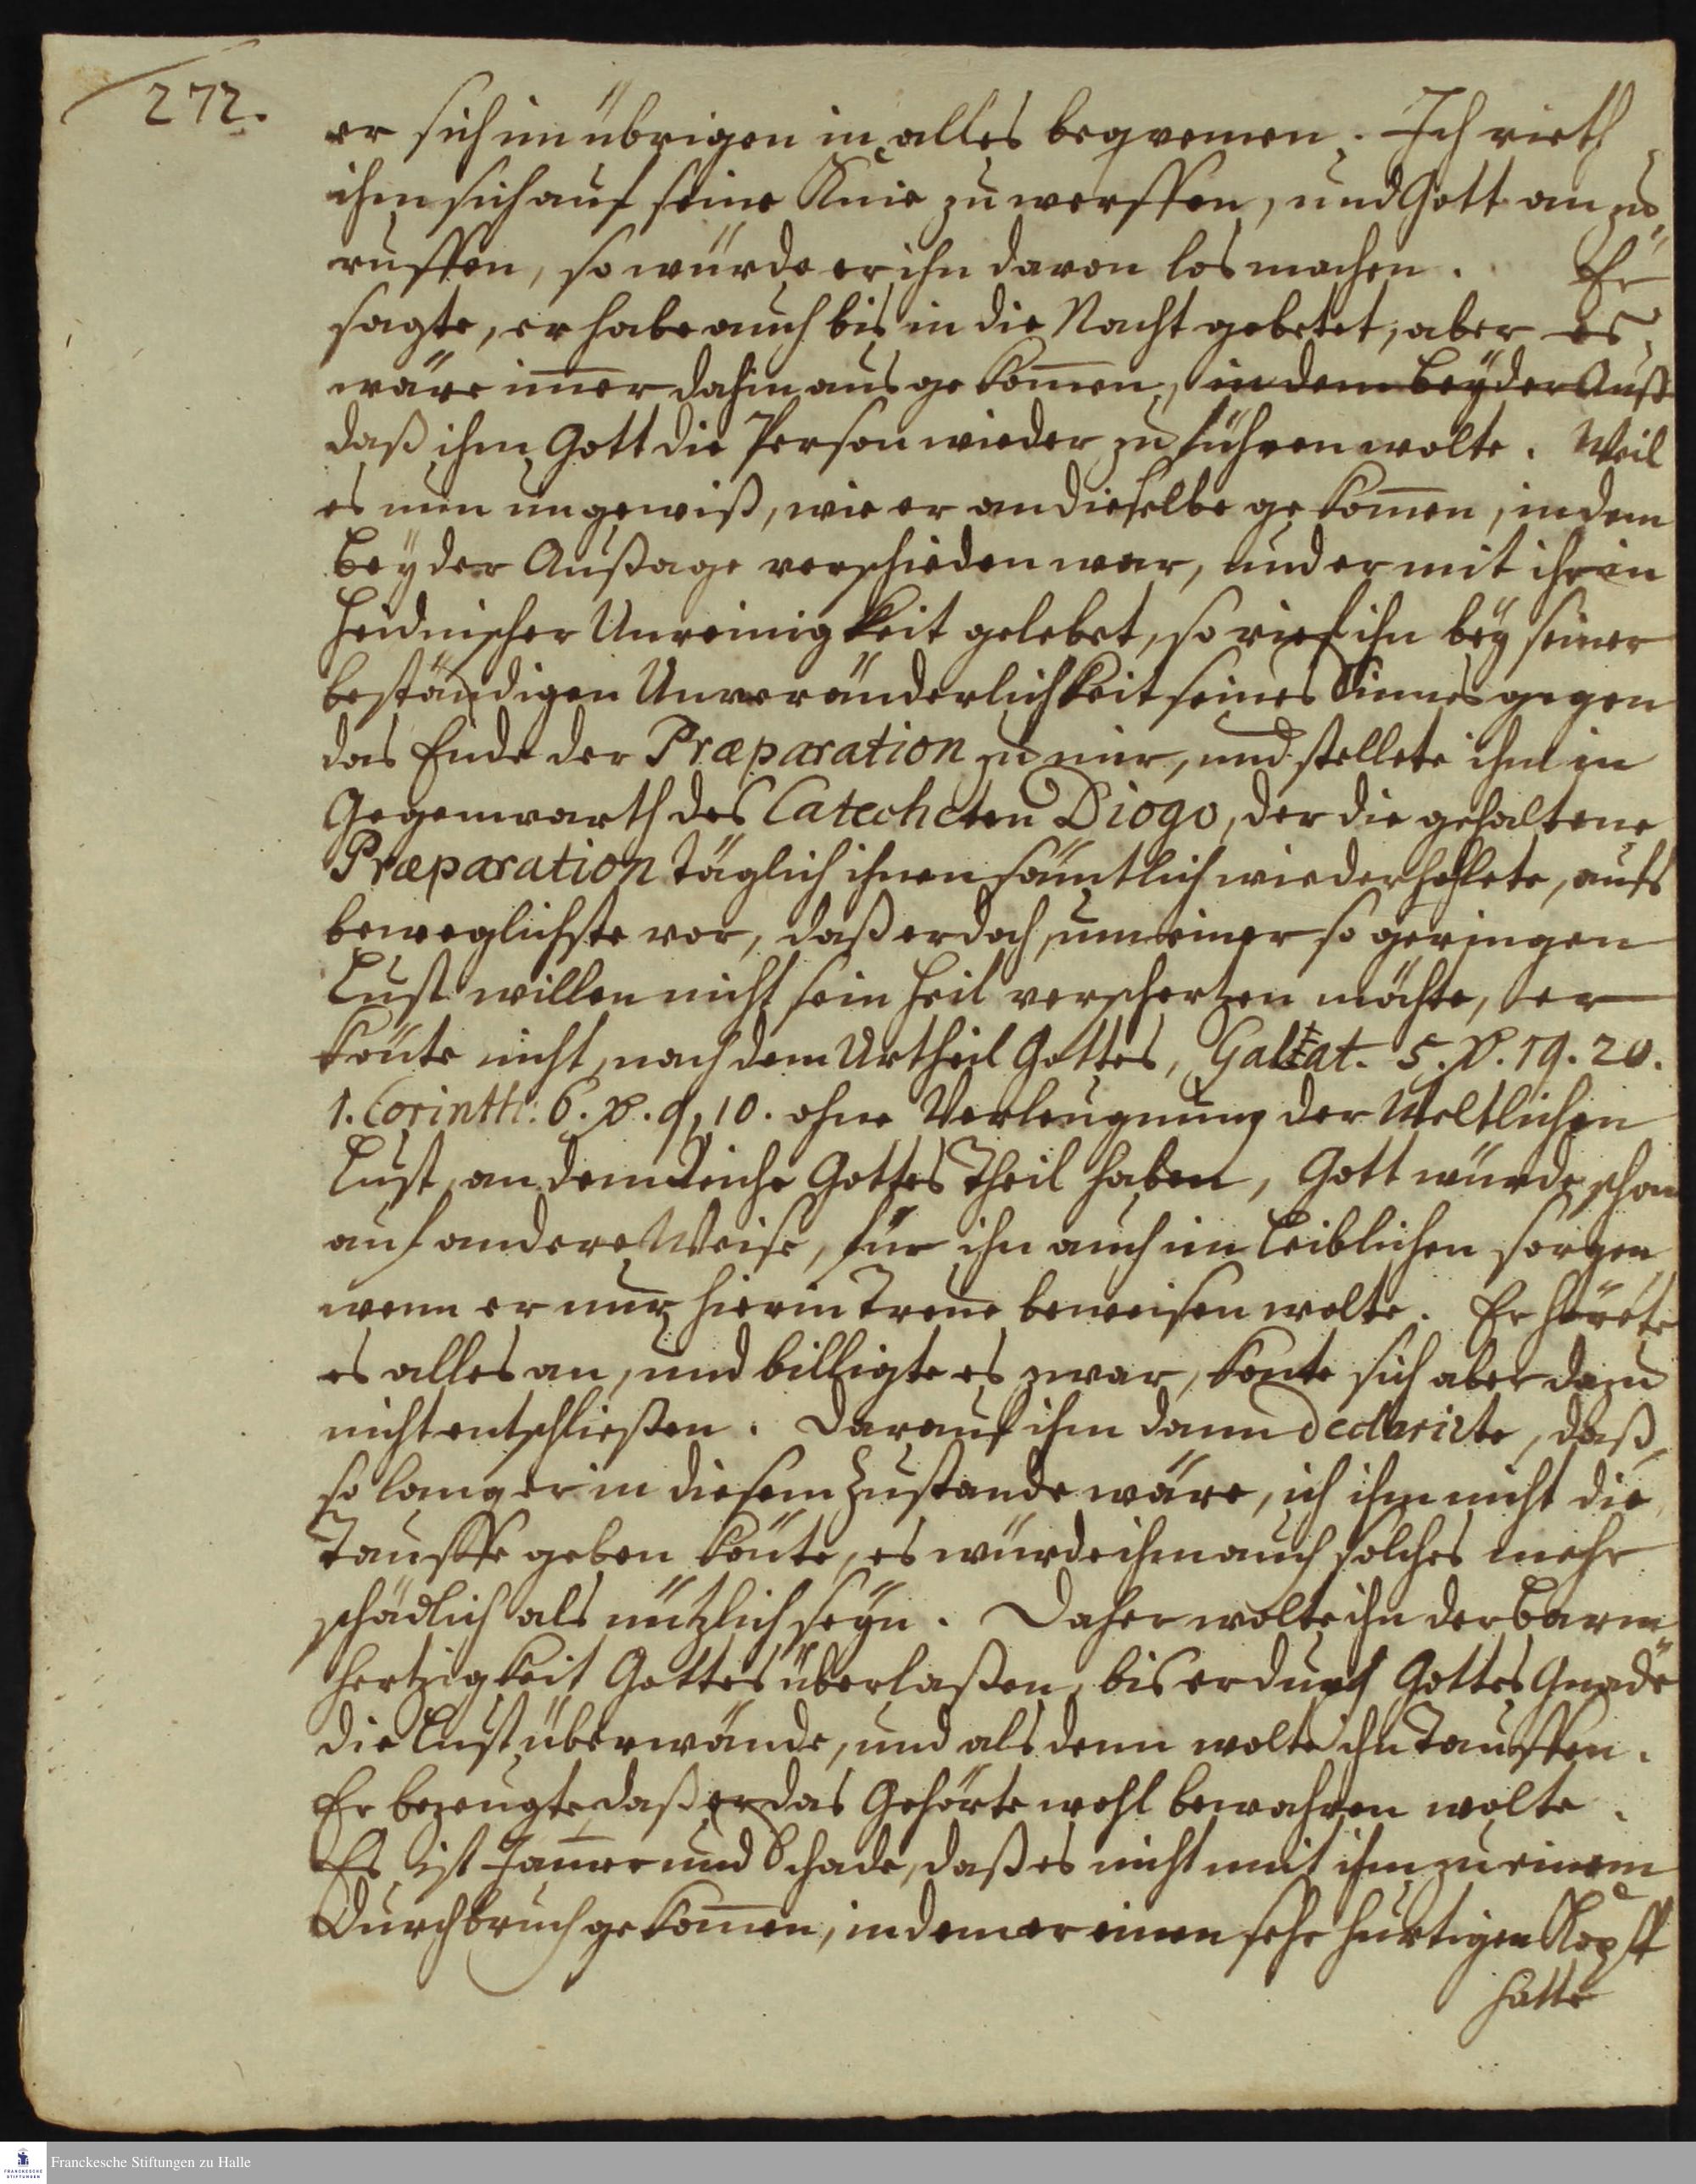 272.
er sich im übrigen in alles beqvemen. Ich rieth
ihm sich auf seine Knie zu werffen, und Gott an zu
ruffen, so würde er ihn davon los machen. Er
sagte, er habe auch bis in die Nacht gebetet, aber es
wäre im̅er dahin aus gekom̅en, in dem beyder Auß
daß ihm Gott die Person wieder zu führen wolte. Weil
es nun ungewiß, wie er an dieselbe gekom̅en, in dem
beyder Außage verschieden war, und er mit ihr in
Heidnischer Unreinigkeit gelebet, so rief ihn bey seiner
beständigen Unveränderlichkeit seines Sinnes gegen
das Ende der Præparation zu mir, und stellete ihm in
Gegenwarth des Catecheten Diogo, der die gehaltene
Præparation täglich ihnen sämtlich wiederhohlete, aufs
beweglichste vor, daß er doch um einer so geringen
Lust willen nicht sein Heil verschertzen möchte, er
kön̅te nicht, nach dem Urtheil Gottes, Galat. 5. v. 19. 20.
1. Corinth: 6. v. 9, 10. ohne Verleugnung der Weltlichen
Lust, an dem Reiche Gottes Theil haben, Gott würde schon
auf andere Weise, für ihn auch im Leiblichen sorgen,
wenn er nur hierin Treue beweisen wolte. Er hörete
es alles an, und billigte es zwar, konte sich aber dazu
nicht entschließen. Darauf ihm dann declarirte, daß
so lang er in diesem Zustande wäre, ich ihm nicht die
Tauffe geben kön̅te, es würde ihm auch solches mehr
schädlich als nützlich seyn. Daher wolte ihn der Barm
hertzigkeit Gottes überlaßen, bis er durch Gottes Gnade
die Lust überwände, und als denn wolte ihn Tauffen.
Er bezeugte, daß er das Gehörte wohl bewahren wolte.
Es ist Jam̅er und Schade, daß es nicht mit ihm zu einem
Durchbruch gekom̅en, in dem er einen sehr hurtigen Kopff
hatte
Franckesche Stiftungen zu Halle